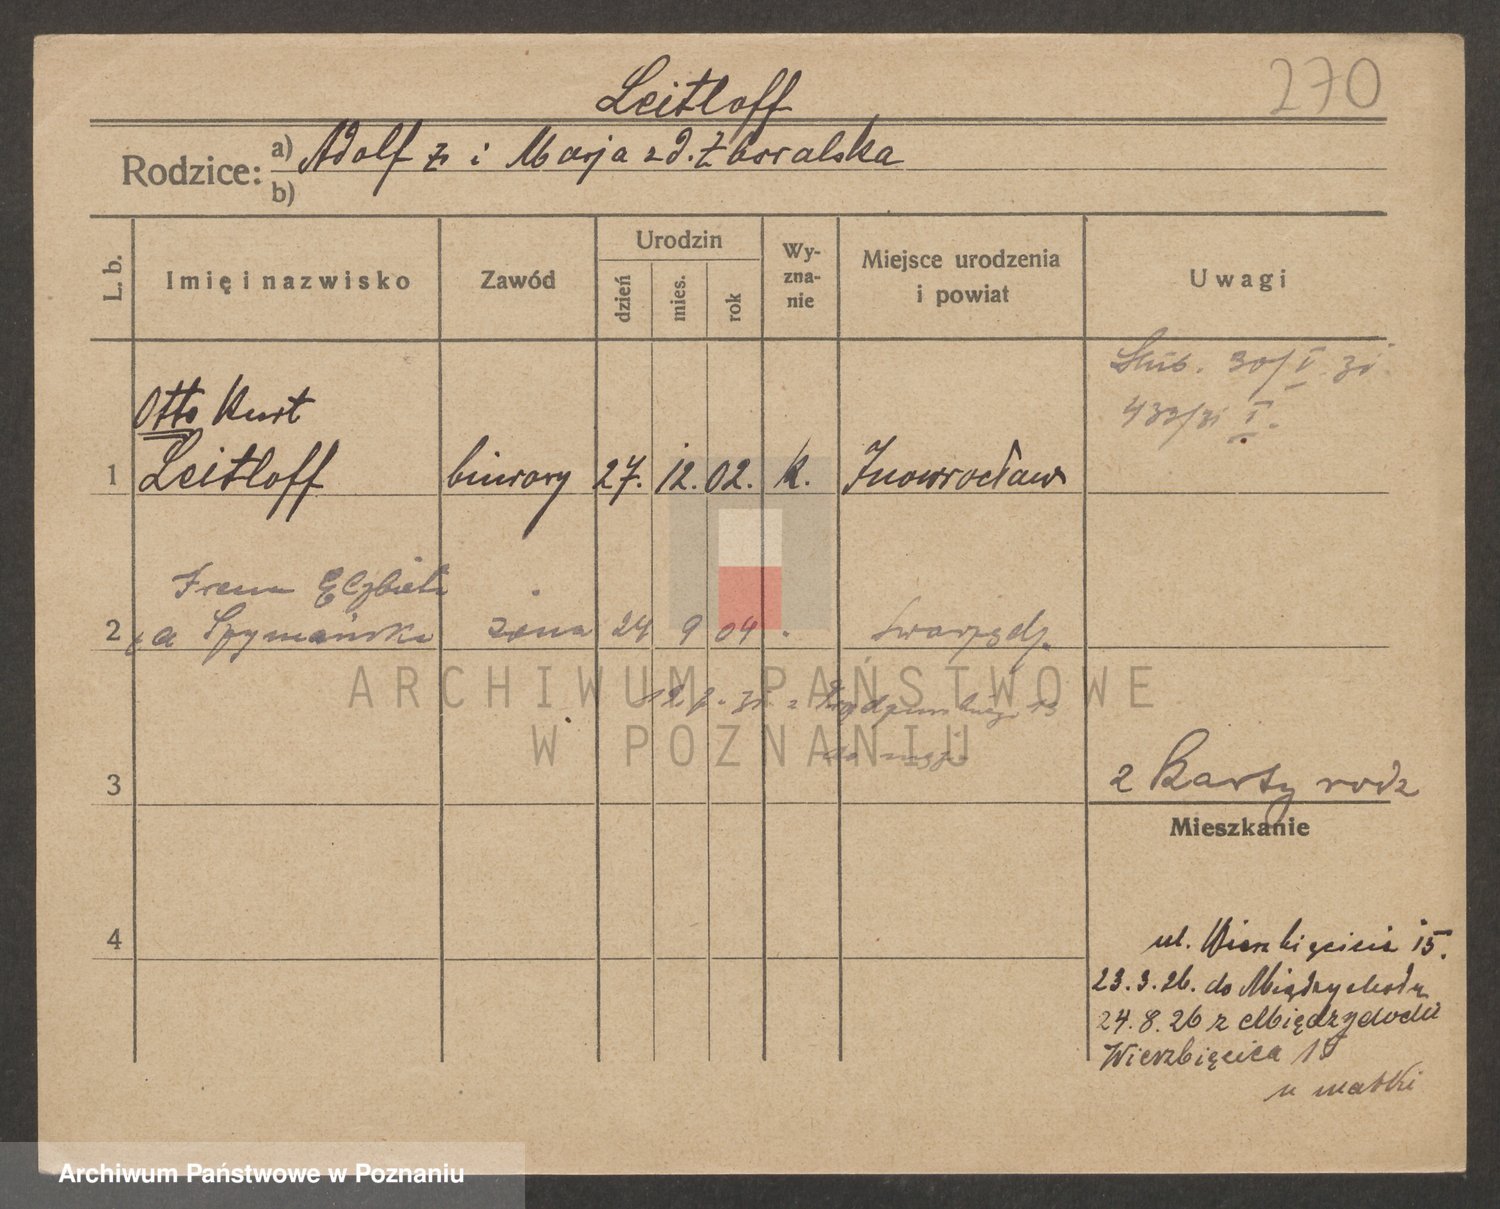 Leitloff
270
Rodzice: a) Adolf zm i Marja zd. Zboralska
b)
L. b.
Imię i nazwisko
Zawód
Urodzin
dzień
mies.
rok
Wy-
zna-
nie
Miejsce urodzenia
i powiat
Uwagi
Ślub. 30/V. 31.
433/31 I.
Otto Kurt
1 Leitloff biurowy 27. 12. 02. k. Inowrocław
Irena Elżbieta
2 Szymańska żona 24 9 04 Swarzędz
ARCHIWUM PAŃSTWOWE
W POZNANIU
do męża
3
2 Karty rodz
Mieszkanie
4
ul. Wierzbięcice 15.
23.3.26. do Międzychodu
24.8.26 z Międzychodu
Wierzbięcice 15
u matki
Archiwum Państwowe w Poznaniu